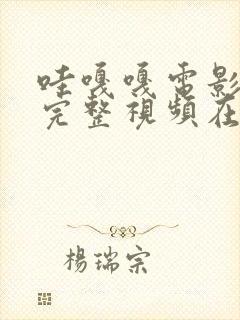 哇嘎嘎電影
完整視頻在
楊瑞宗